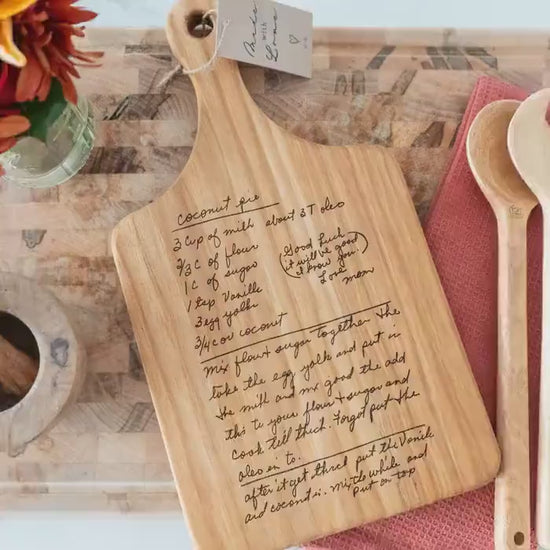 Made
with
Love
coconut pie
3 cup of milk about 3 T oleo
2/3 C of flour
1 C of sugar
1 tsp Vanille
3 egg yolk
3/4 cov coconut
(Good Luck
it will be good
I know you.)
Love
mom
mix flour & sugar together the
take the egg yolk and put in
the milk and mx good the add
this to your flour & sugar and
cook tell thick. Forgot put the
oleo en to.
after it get thick put the Vanile
and coconut in. mix to while and
put on top